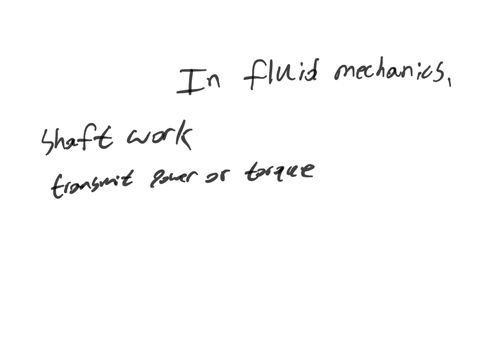 In fluid mechanics,
shaft work
transmit power or torque